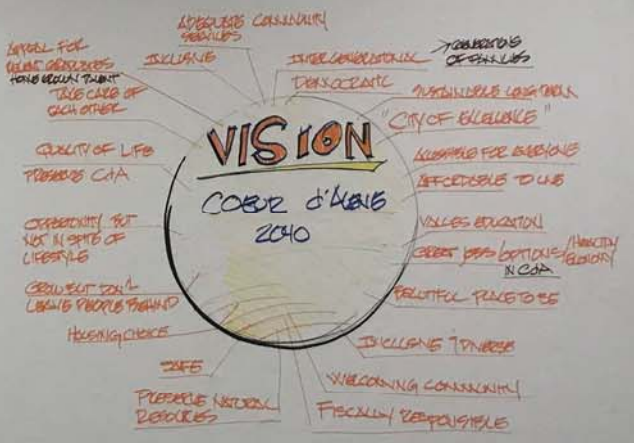 VISION
COEUR d'ALENE
2040
ADEQUATE COMMUNITY
SERVICES
INCLUSIVE
APPEAL FOR
RECENT GRADUATES
HOME GROWN TALENT
TAKE CARE OF
EACH OTHER
QUALITY OF LIFE
PRESERVE CdA
OPPORTUNITY BUT
NOT IN SPITE OF
LIFESTYLE
GROW BUT DON'T
LEAVE PEOPLE BEHIND
HOUSING CHOICE
SAFE
PRESERVE NATURAL
RESOURCES
INTERGENERATIONAL
GENERATIONS
OF FAMILIES
DEMOCRATIC
SUSTAINABLE LONG TERM
"CITY OF EXCELLENCE"
ACCESSIBLE FOR EVERYONE
AFFORDABLE TO LIVE
VALUES EDUCATION
GREAT JOBS/OPTIONS/HEALTHY
ECONOMY
IN CdA
BEAUTIFUL PLACE TO BE
INCLUSIVE + DIVERSE
WELCOMING COMMUNITY
FISCALLY RESPONSIBLE